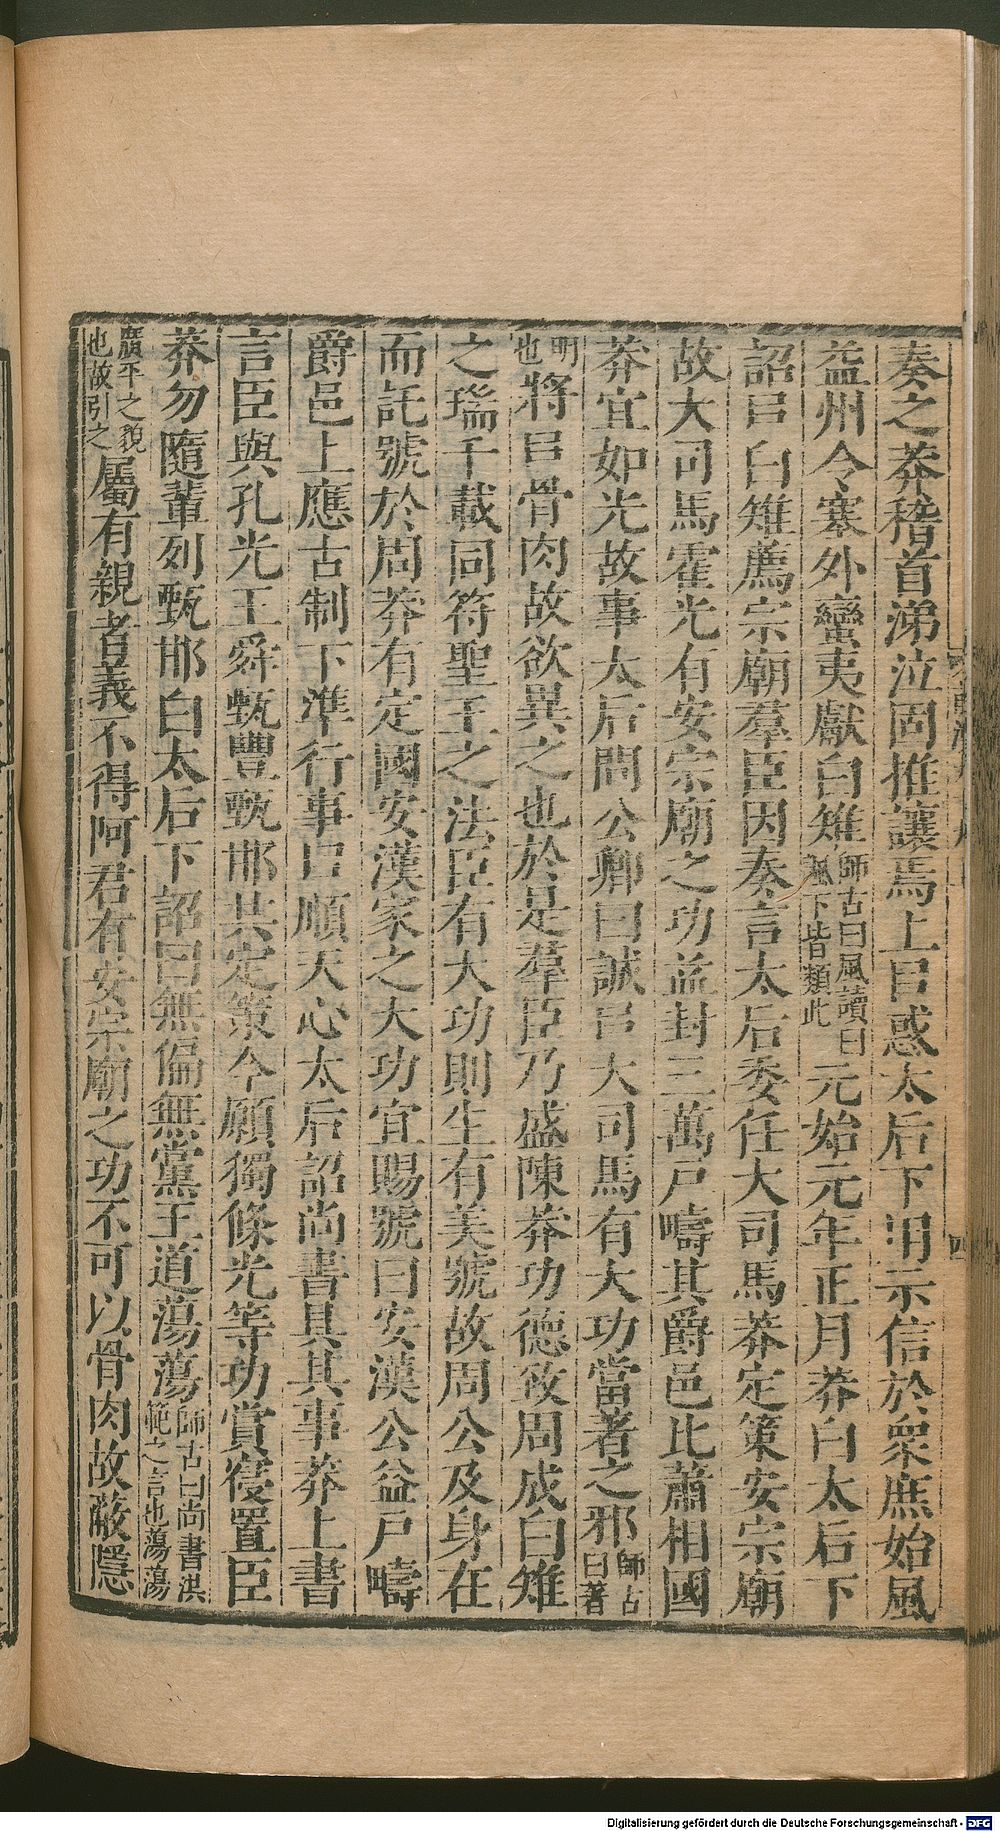 奏之莽稽首涕泣固推讓焉上㠯惑太后下用示信於衆庶始風
益州令塞外蠻夷獻白雉師古曰風讀曰諷下皆類此元始元年正月莽白太后下
詔㠯白雉薦宗廟羣臣因奏言太后委任大司馬莽定策安宗廟
故大司馬霍光有安宗廟之功益封三萬戸疇其爵邑比蕭相國
莽宜如光故事太后問公卿曰誠㠯大司馬有大功當著之邪師古曰著
明也將㠯骨肉故欲異之也於是羣臣乃盛陳莽功德致周成白雉
之瑞千載同符聖王之法臣有大功則生有美號故周公及身在
而託號於周莽有定國安漢家之大功宜賜號曰安漢公益戸疇
爵邑上應古制下準行事㠯順天心太后詔尚書具其事莽上書
言臣與孔光王舜甄豐甄邯共定策今願獨條光等功賞寢置臣
莽勿隨輩列甄邯白太后下詔曰無偏無黨王道蕩蕩師古曰尚書洪範之言也蕩蕩
廣平之貌也故引之屬有親者義不得阿君有安宗廟之功不可以骨肉故蔽隱
四
Digitalisierung gefördert durch die Deutsche Forschungsgemeinschaft - DFG